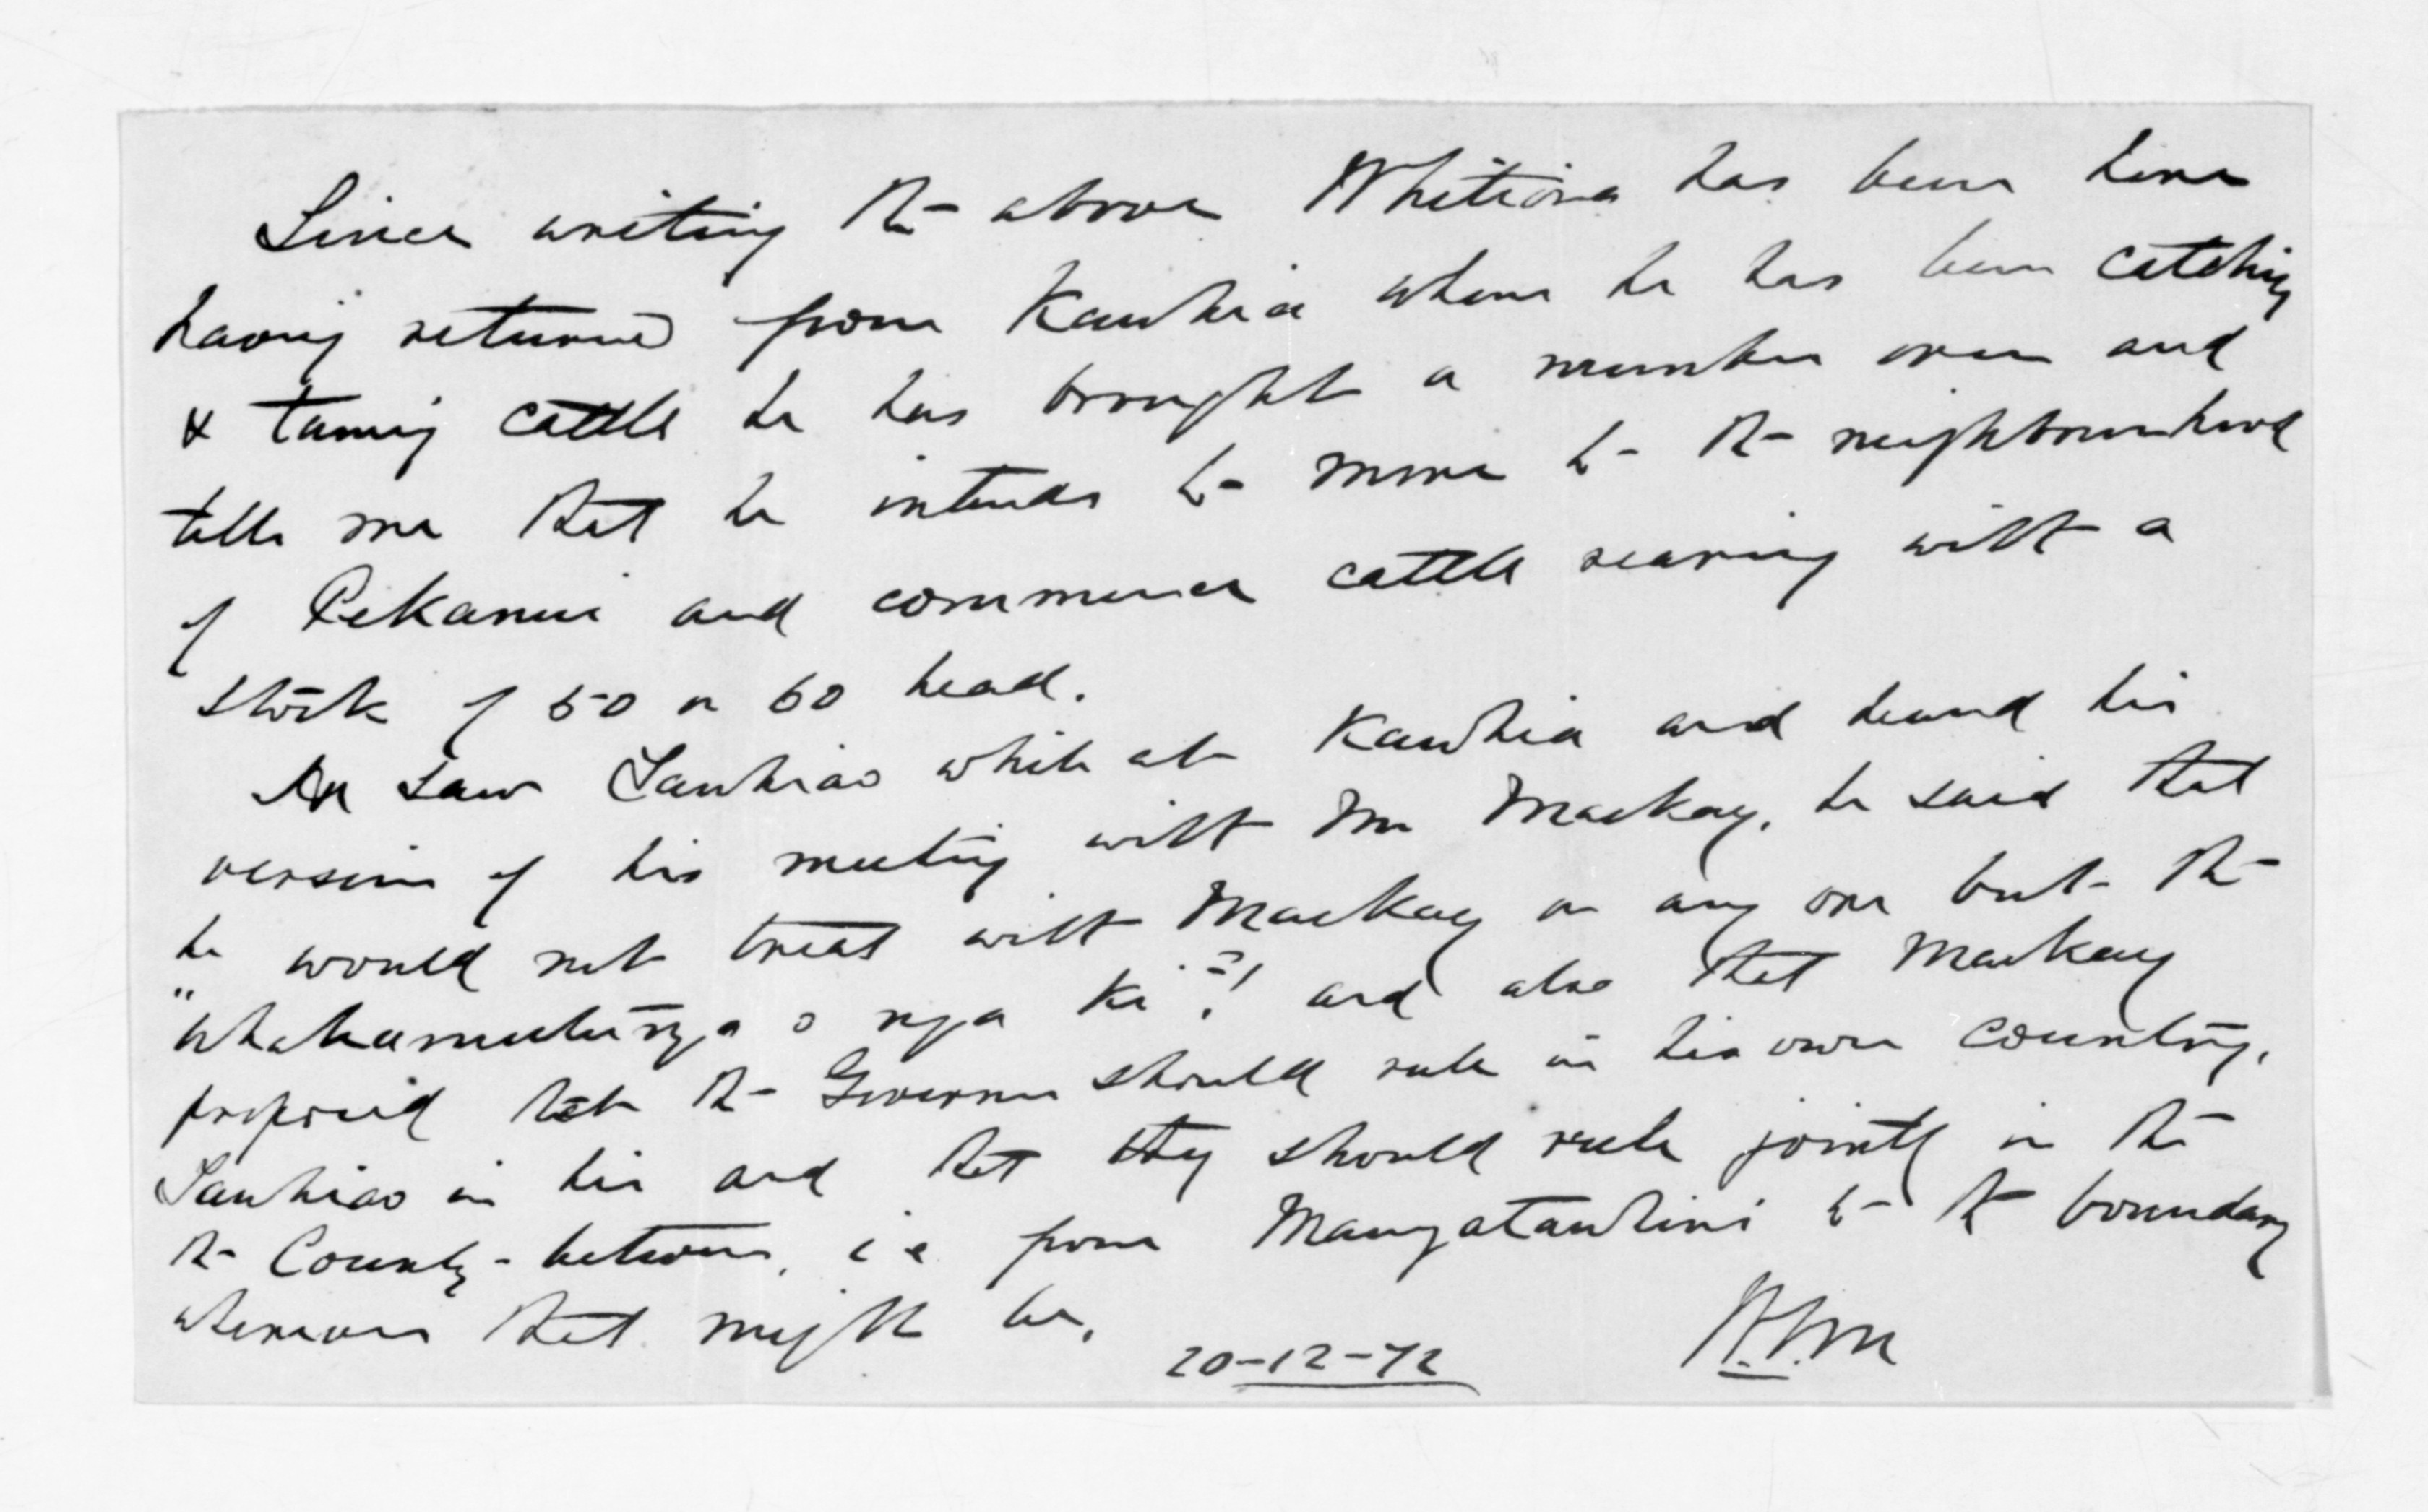 Since writing the above Whitiora has been here
having returned from Kawhia where he has been catching
& taming cattle he has brought a number over and
tells me that he intends to move to the neighbourhood
of Pekanui and commence cattle rearing with a
stock of 50 or 60 head.
He saw Tawhiao while at Kawhia and heard his
version of his meeting with Mr Mackay, he said that
he would not treat with Mackay or any one but the
"whakamutunga o nga ki"! and also that Mackay
proposed that the Governor should rule in his own country,
Tawhiao in his and that they should rule jointly in the
the County - between, i e from Mangatawhiri to the boundary
wherever that might be.
20-12-72